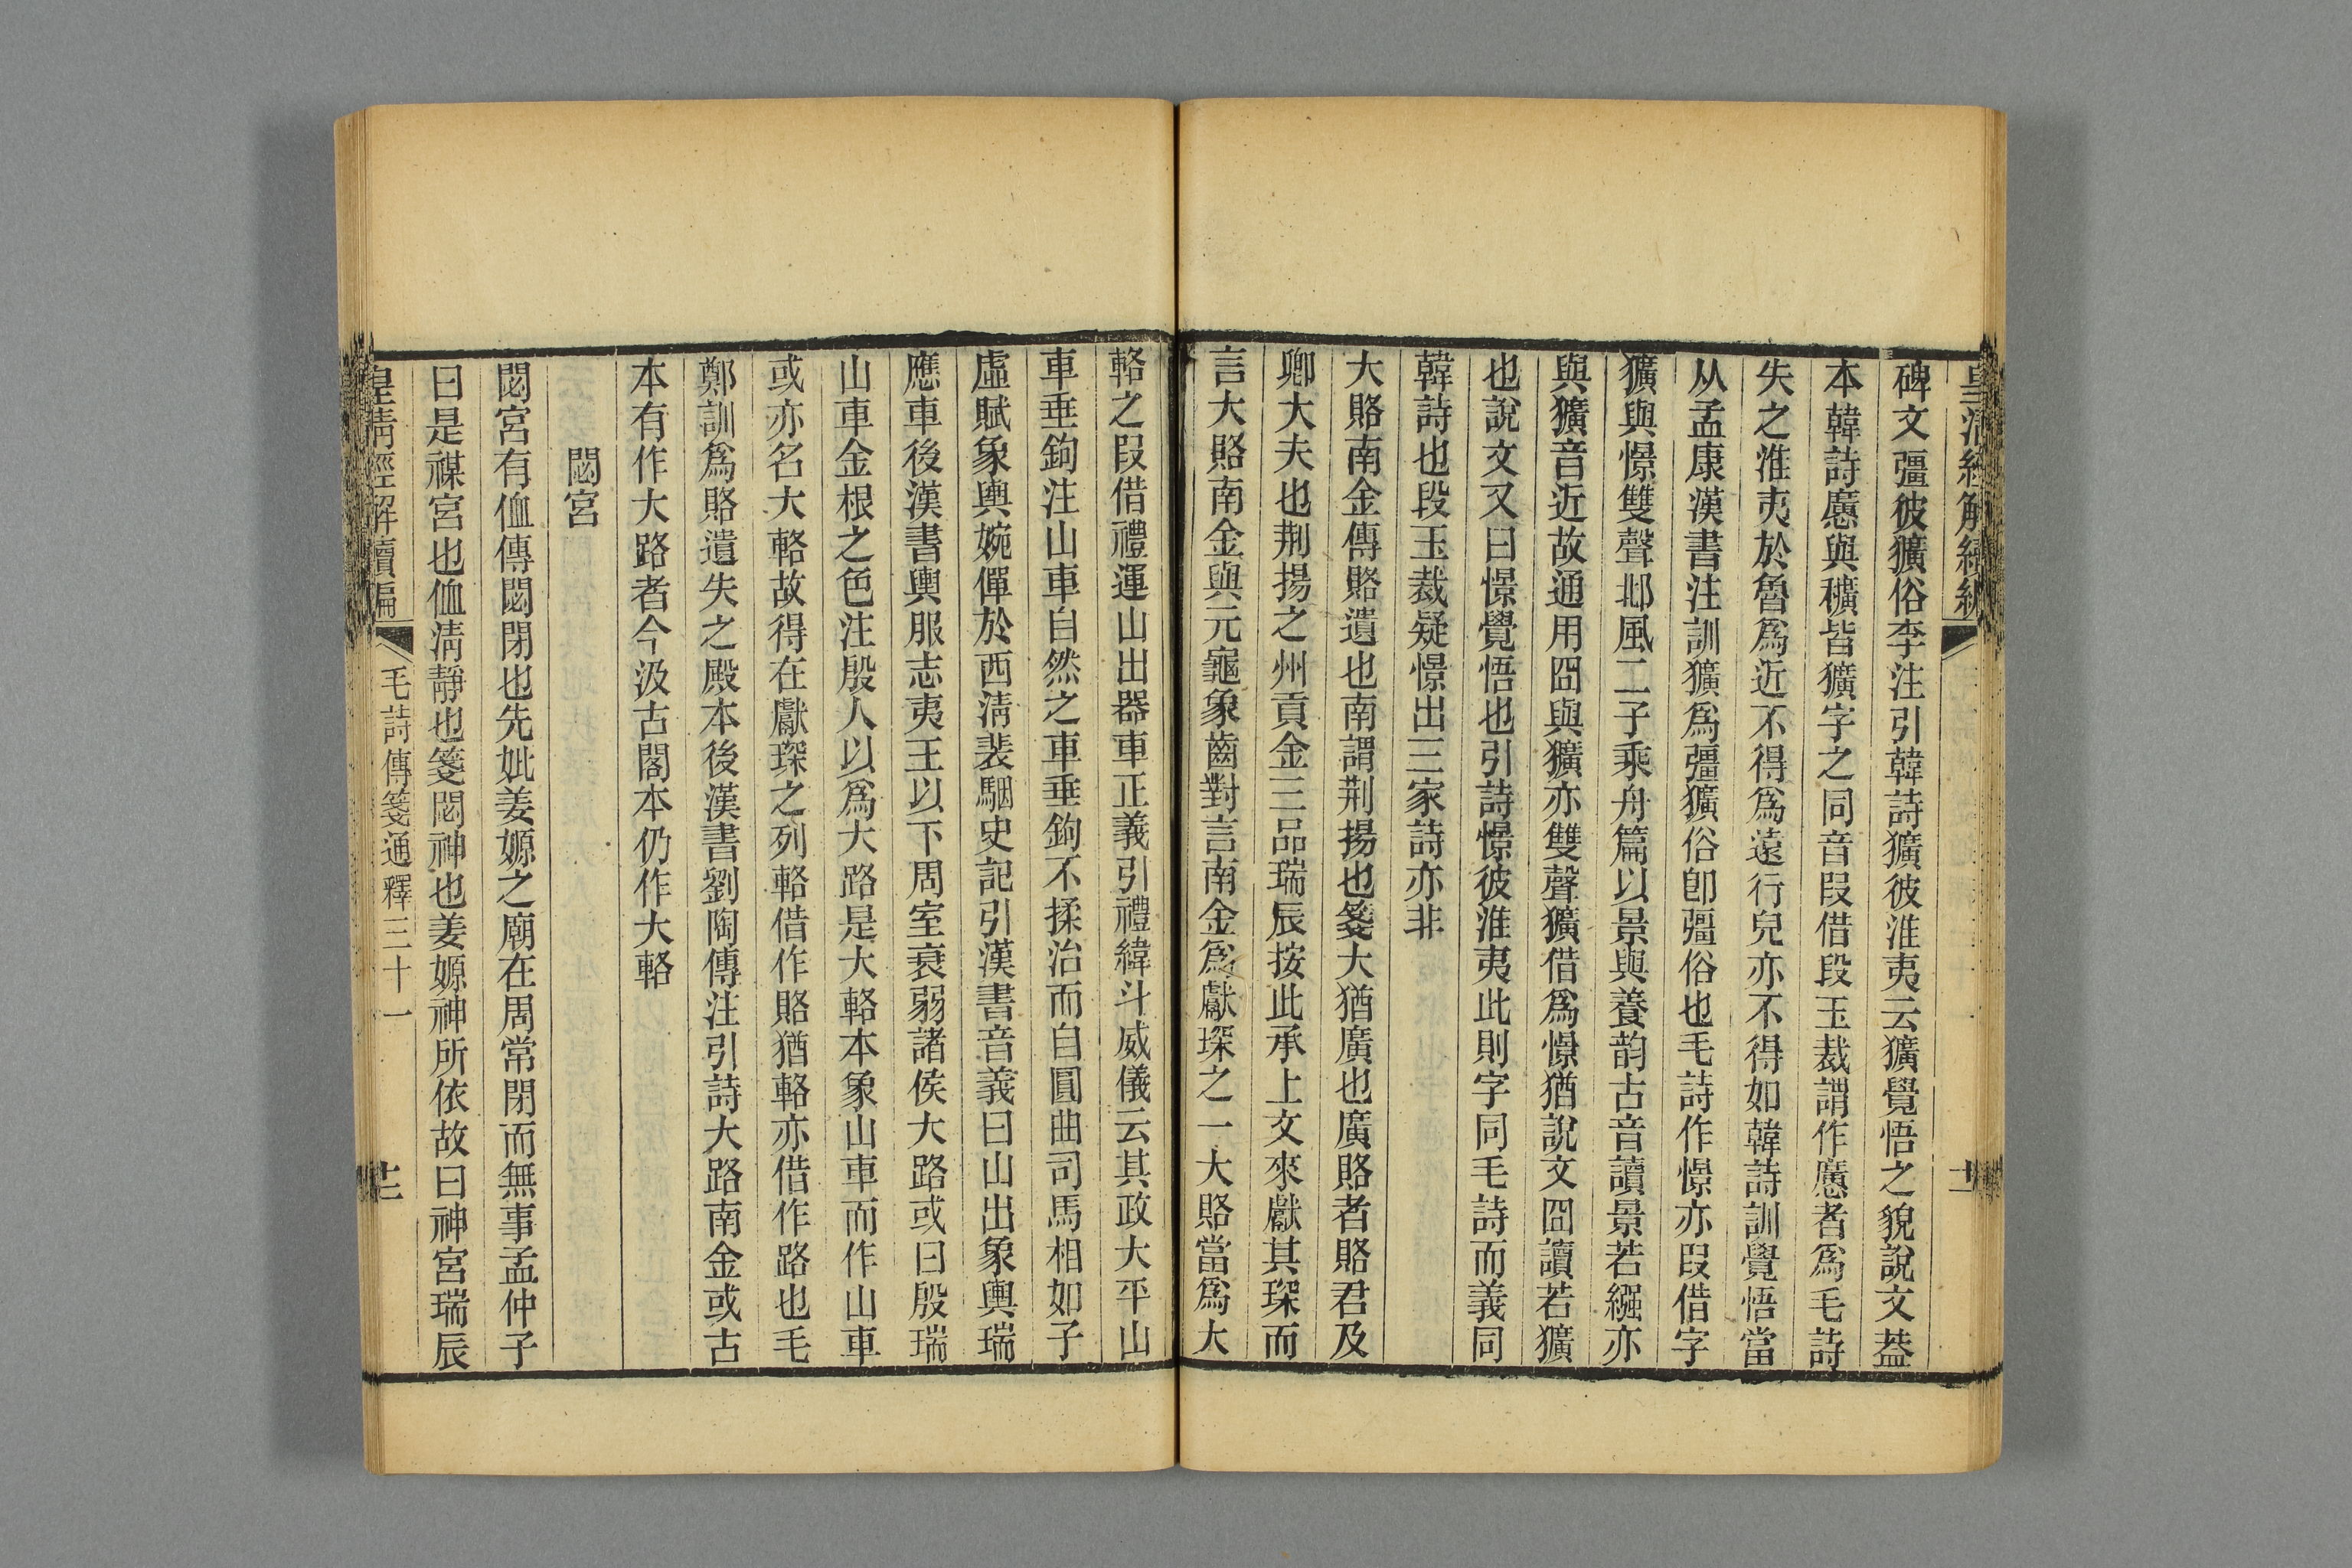 皇清經解續編
碑文彊彼獷俗李注引韓詩獷彼淮夷云獷覺悟之貌說文葢
本韓詩懬與穬皆獷字之同音叚借段玉裁謂作懬者爲毛詩
失之淮夷於魯爲近不得爲遠行皃亦不得如韓詩訓覺悟當
从孟康漢書注訓獷爲彊獷俗卽彊俗也毛詩作憬亦叚借字
獷與憬雙聲邶風二子乘舟篇以景與養韵古音讀景若繈亦
與獷音近故通用囧與獷亦雙聲獷借爲憬猶說文囧讀若獷
也說文又曰憬覺悟也引詩憬彼淮夷此則字同毛詩而義同
韓詩也段玉裁疑憬出三家詩亦非
大賂南金傳賂遺也南謂荆揚也箋大猶廣也廣賂者賂君及
卿大夫也荆揚之州貢金三品瑞辰按此承上文來獻其琛而
言大賂南金與元龜象齒對言南金爲獻琛之一大賂當爲大
輅之叚借禮運山出器車正義引禮緯斗威儀云其政大平山
車垂鉤注山車自然之車垂鉤不揉治而自圓曲司馬相如子
虛賦象輿婉僤於西淸裴駰史記引漢書音義曰山出象輿瑞
應車後漢書輿服志夷王以下周室衰弱諸侯大路或曰殷瑞
山車金根之色注殷人以爲大路是大輅本象山車而作山車
或亦名大輅故得在獻琛之列輅借作賂猶輅亦借作路也毛
鄭訓爲賂遺失之殿本後漢書劉陶傳注引詩大路南金或古
本有作大路者今汲古閣本仍作大輅
閟宮
閟宮有侐傳閟閉也先妣姜嫄之廟在周常閉而無事孟仲子
曰是禖宮也侐淸靜也箋閟神也姜嫄神所依故曰神宮瑞辰
皇淸經解續編
毛詩傳箋通釋三十一
十二